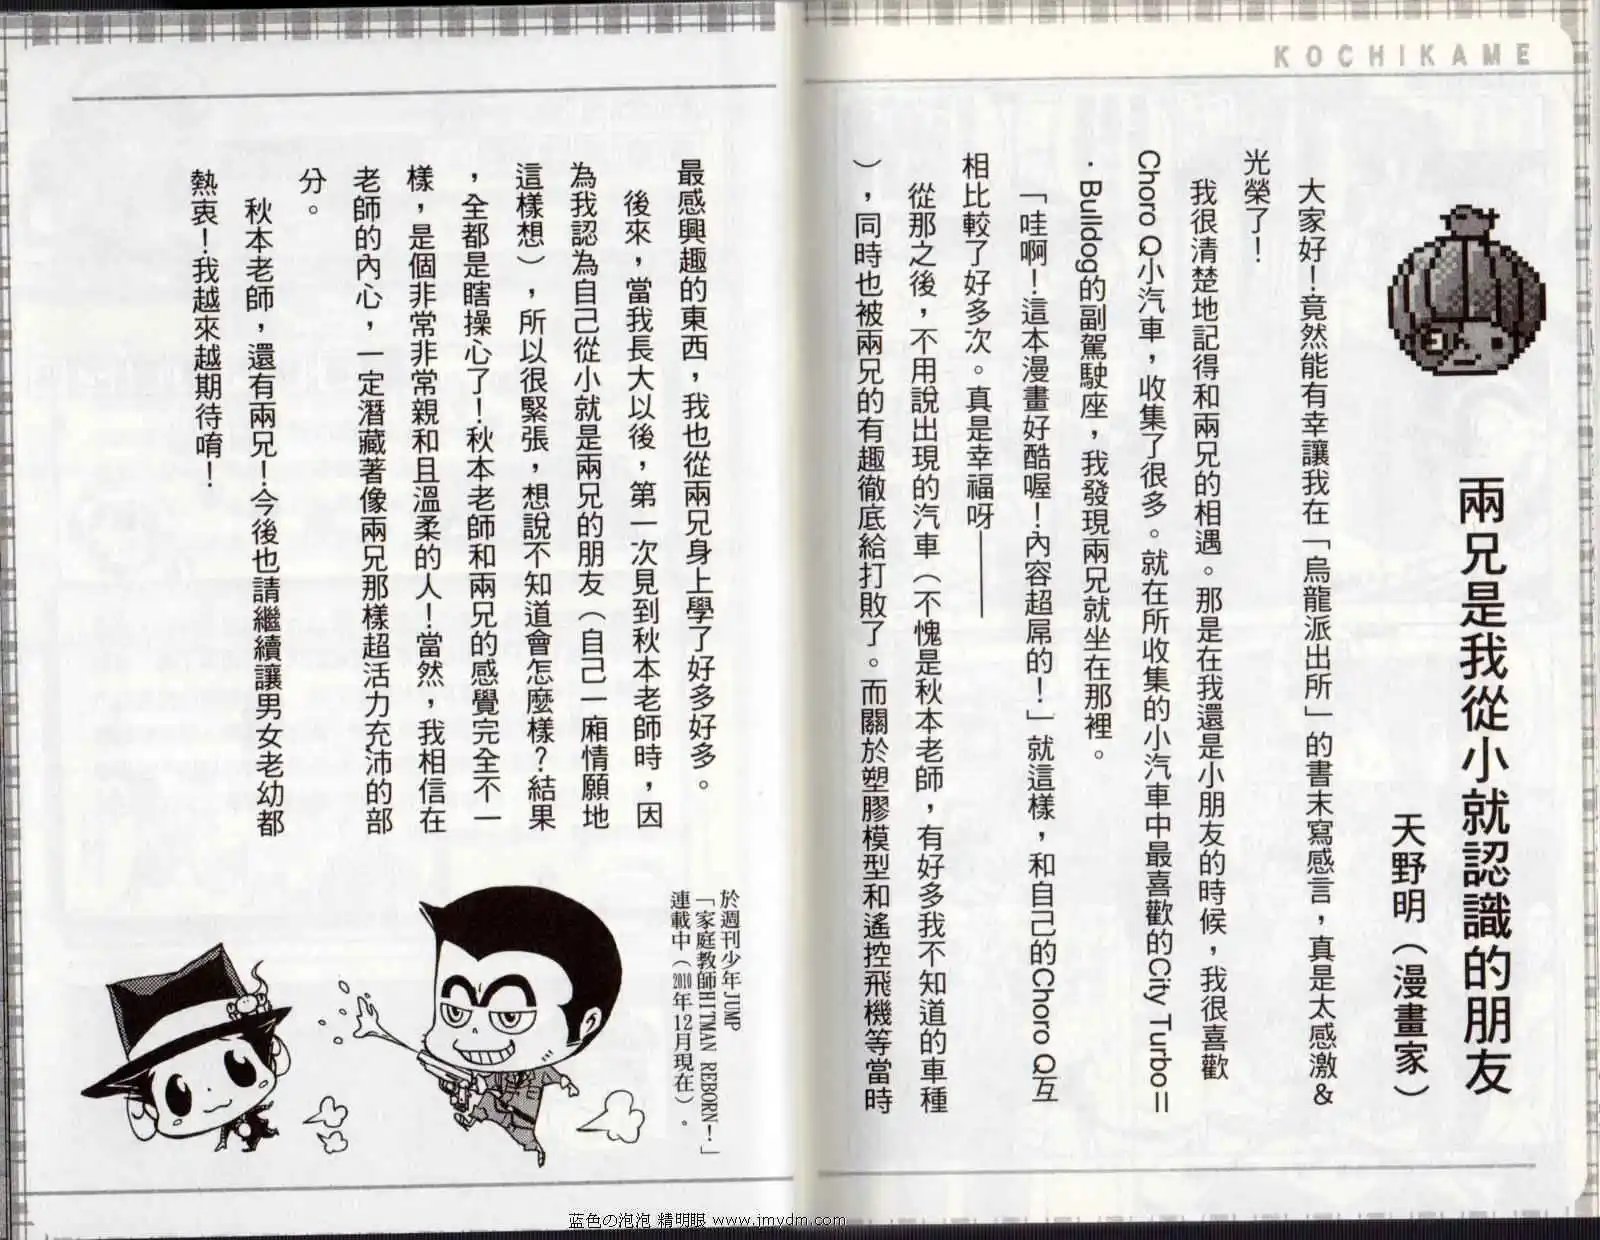 KOCHIKAME
兩兄是我從小就認識的朋友
天野明（漫畫家）
大家好！竟然能有幸讓我在「烏龍派出所」的書末寫感言，真是太感激&
光榮了！
我很清楚地記得和兩兄的相遇。那是在我還是小朋友的時候，我很喜歡
Choro Q小汽車，收集了很多。就在所收集的小汽車中最喜歡的City TurboⅡ
．Bulldog的副駕駛座，我發現兩兄就坐在那裡。
「哇啊！這本漫畫好酷喔！內容超屌的！」就這樣，和自己的Choro Q互
相比較了好多次。真是幸福呀——
從那之後，不用說出現的汽車（不愧是秋本老師，有好多我不知道的車種
），同時也被兩兄的有趣徹底給打敗了。而關於塑膠模型和遙控飛機等當時
最感興趣的東西，我也從兩兄身上學了好多好多。
後來，當我長大以後，第一次見到秋本老師時，因
為我認為自己從小就是兩兄的朋友（自己一廂情願地
這樣想），所以很緊張，想說不知道會怎麼樣？結果
，全都是瞎操心了！秋本老師和兩兄的感覺完全不一
樣，是個非常非常親和且溫柔的人！當然，我相信在
老師的內心，一定潛藏著像兩兄那樣超活力充沛的部
分。
秋本老師，還有兩兄！今後也請繼續讓男女老幼都
熱衷！我越來越期待唷！
於週刊少年JUMP
「家庭教師HITMAN REBORN！」
連載中（2010年12月現在）。
蓝色の泡泡 精明眼 www.jmydm.com